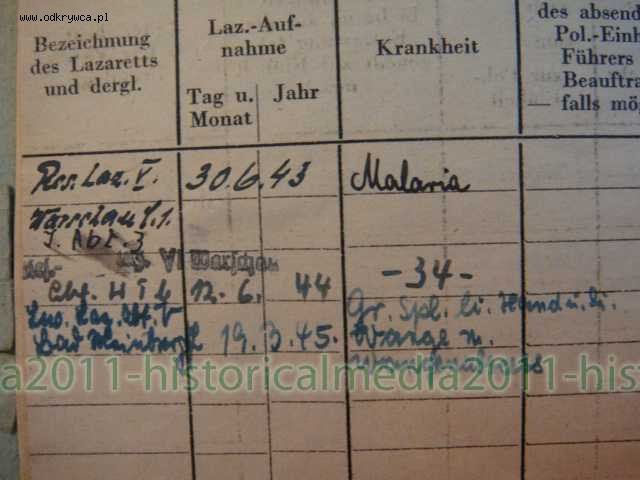 www.odkrywca.pl
Bezeichnung
des Lazaretts
und dergl.
Laz.-Auf-
nahme
Tag u.
Monat
Jahr
Krankheit
des absend
Pol.-Einh
Führers
Beauftra
— falls mög
Res. Laz. V.
30.6.43
Malaria
Warschau
J. Abt. 3
VI Warschau
12. 6. 44
-34-
Gr. Spl. li. Hand u. li.
Bad Meinberg 19. 3. 45.
Wange
a2011-historicalmedia2011-his